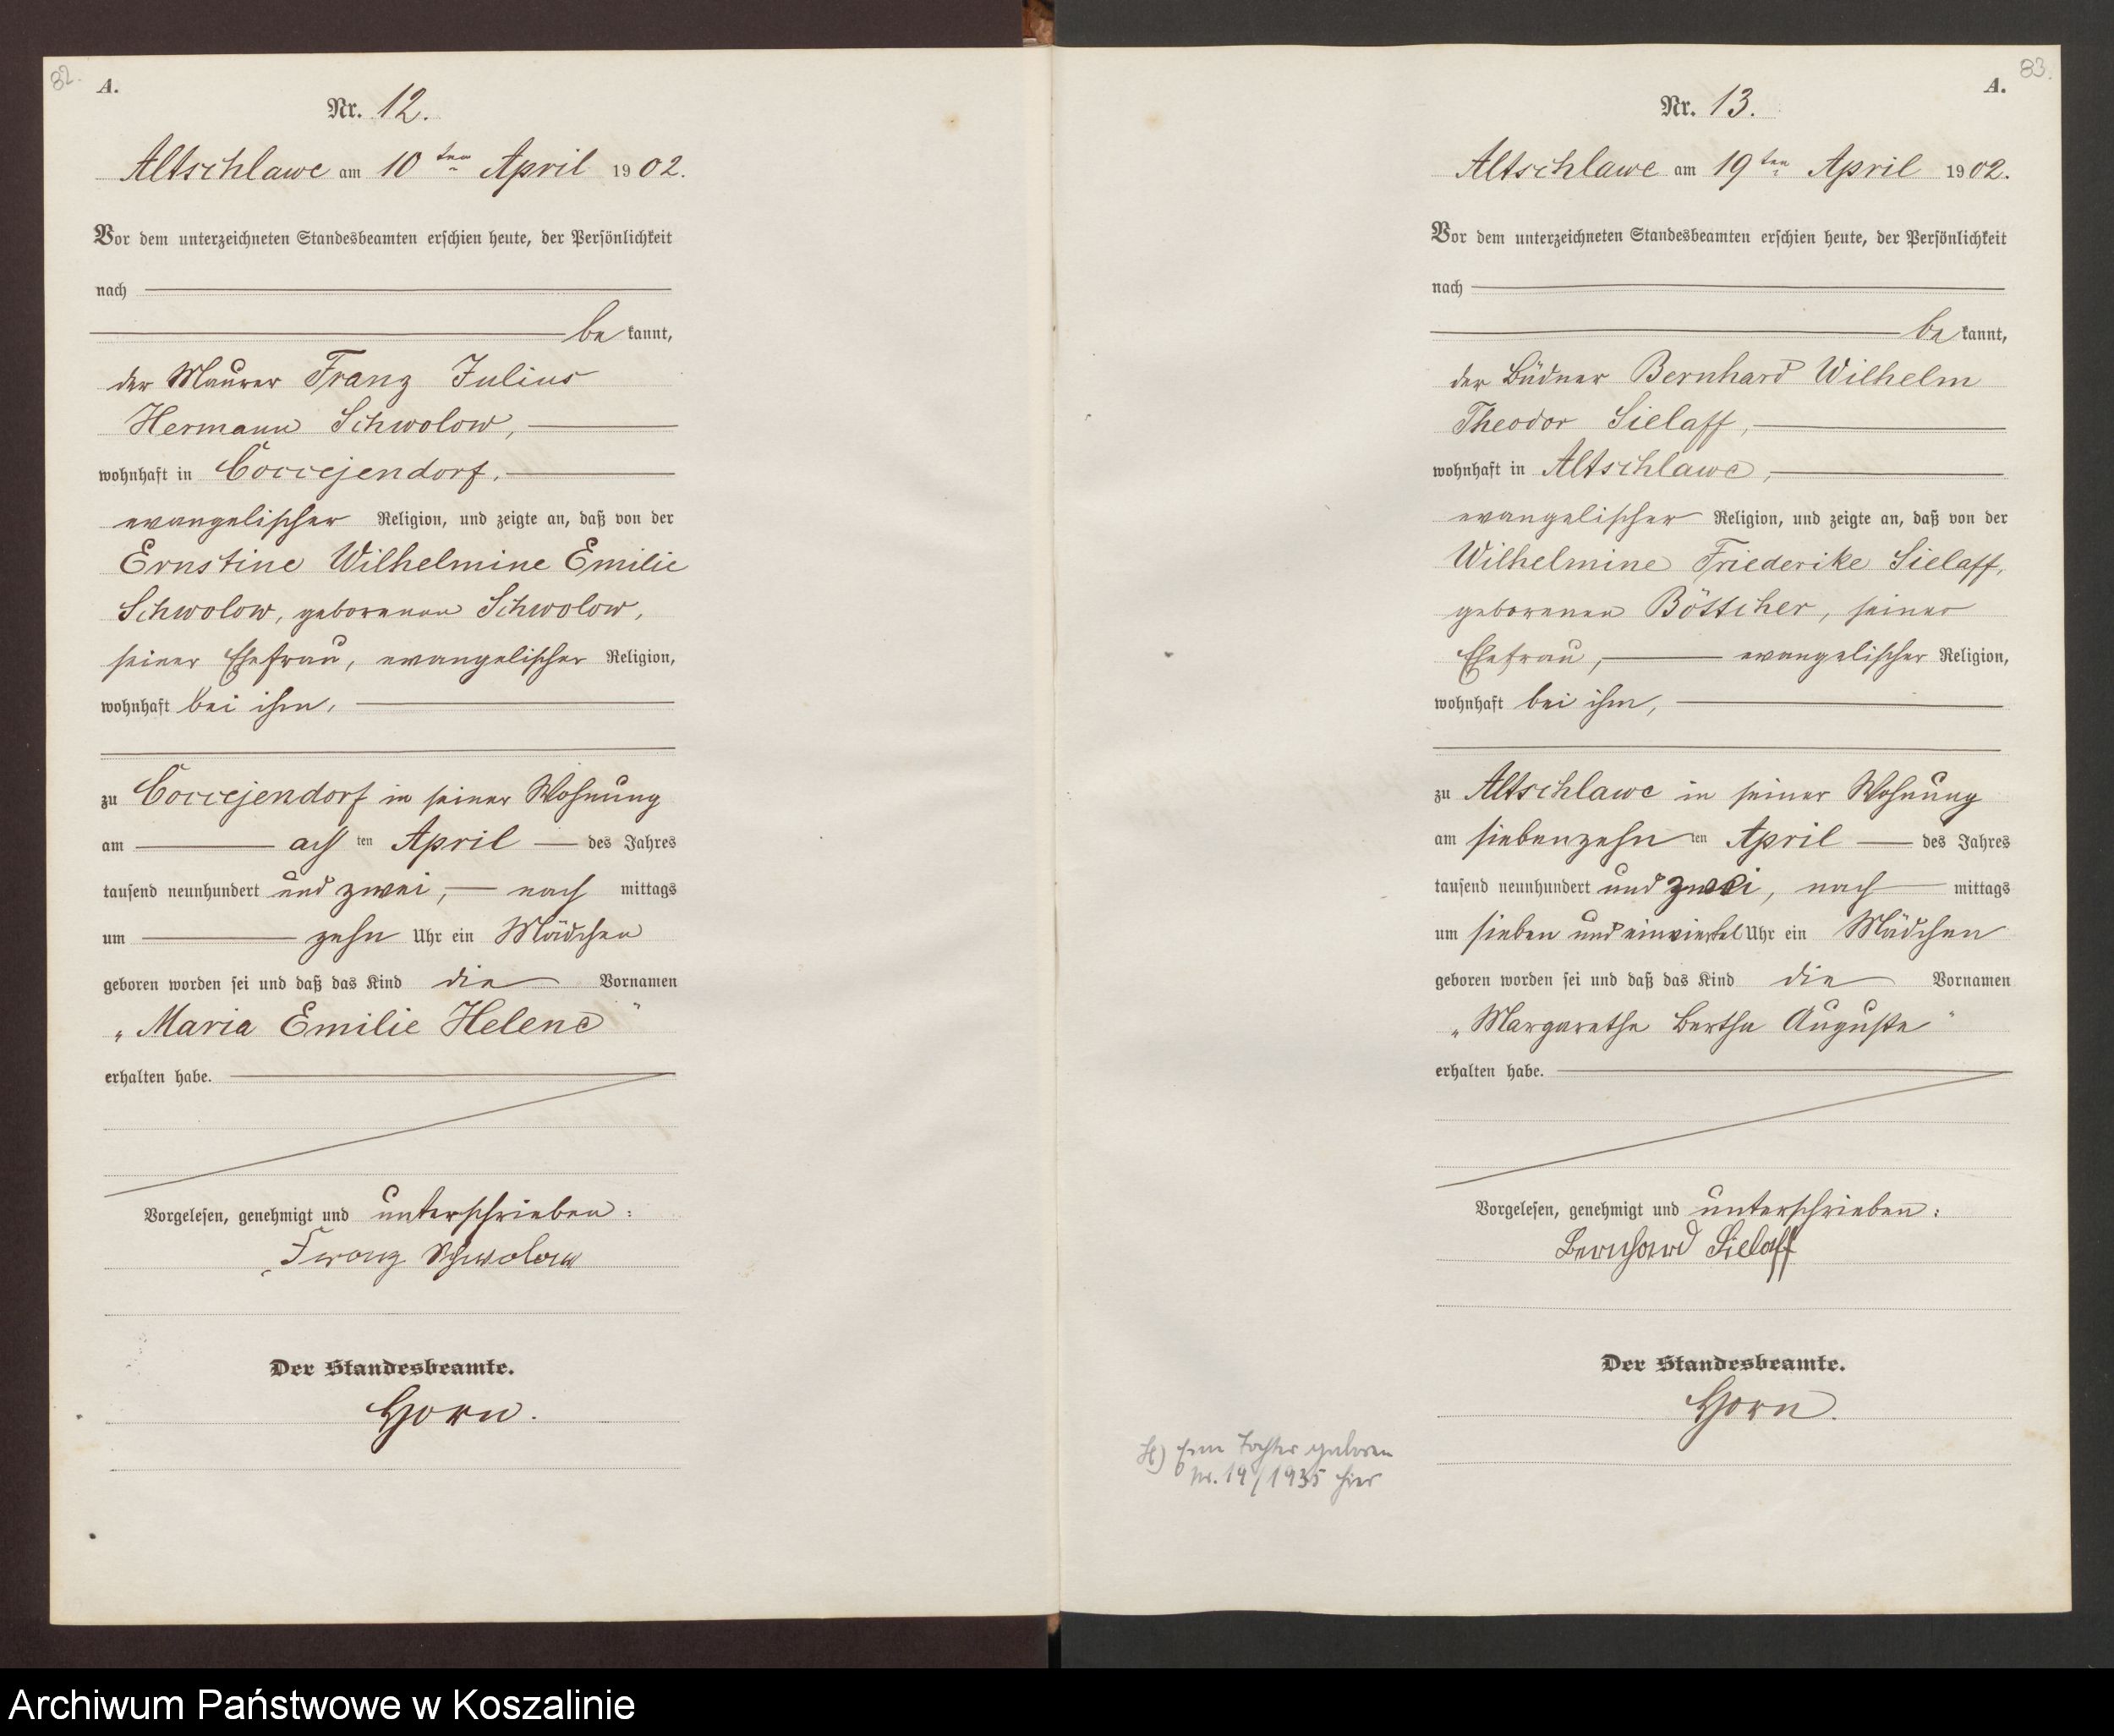 82.
A.
Nr. 12.
Altschlawe am 10ten April 1902.
Vor dem unterzeichneten Standesbeamten erschien heute, der Persönlichkeit
nach
be kannt,
der Maurer Franz Julius
Hermann Schwolow,
wohnhaft in Coccejendorf,
evangelischer Religion, und zeigte an, daß von der
Ernstine Wilhelmine Emilie
Schwolow, geborenen Schwolow,
seiner Ehefrau, evangelischer Religion,
wohnhaft bei ihm,
zu Coccejendorf in seiner Wohnung
am acht ten April des Jahres
tausend neunhundert und zwei, nach mittags
um zehn Uhr ein Mädchen
geboren worden sei und daß das Kind die Vornamen
„Maria Emilie Helene"
erhalten habe.
Vorgelesen, genehmigt und unterschrieben:
Franz Schwolow
Der Standesbeamte.
Horn.
83.
A.
Nr. 13.
Altschlawe am 19ten April 1902.
Vor dem unterzeichneten Standesbeamten erschien heute, der Persönlichkeit
nach
be kannt,
der Büdner Bernhard Wilhelm
Theodor Sielaff,
wohnhaft in Altschlawe,
evangelischer Religion, und zeigte an, daß von der
Wilhelmine Friederike Sielaff,
geborenen Böttcher, seiner
Ehefrau, evangelischer Religion,
wohnhaft bei ihm,
zu Altschlawe in seiner Wohnung
am siebenzehn ten April des Jahres
tausend neunhundert und zwei, nach mittags
um sieben und einviertel Uhr ein Mädchen
geboren worden sei und daß das Kind die Vornamen
„Margarethe Bertha Auguste"
erhalten habe.
Vorgelesen, genehmigt und unterschrieben:
Bernhard Sielaff
Der Standesbeamte.
Horn.
Eine Tochter geboren
Nr. 19/1935 hier
Archiwum Państwowe w Koszalinie